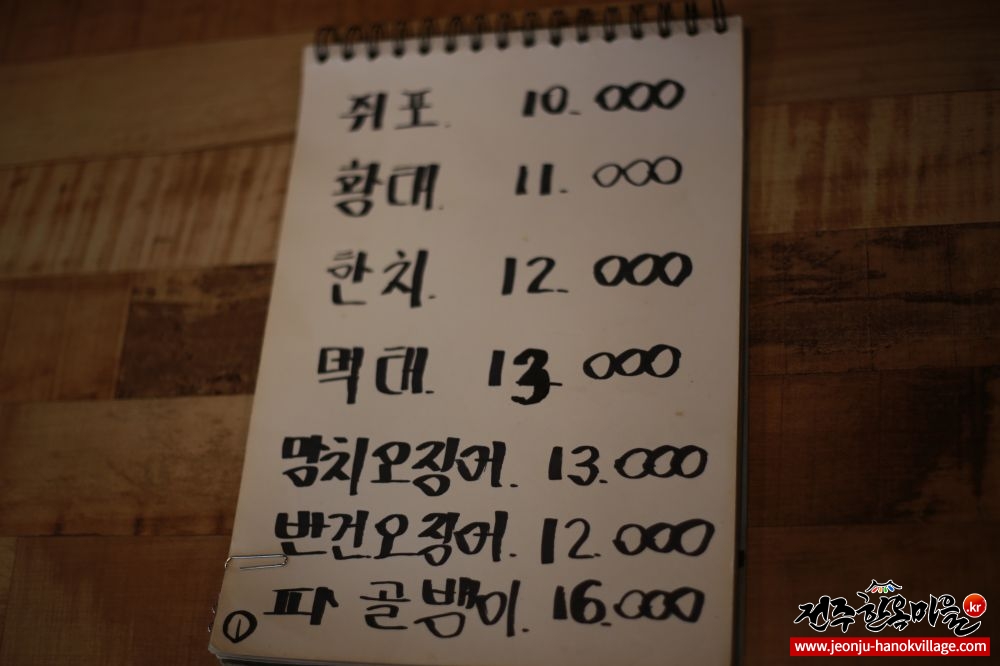 쥐포. 10.000
황태. 11.000
한치. 12.000
먹태. 13.000
망치오징어. 13.000
반건오징어. 12.000
파 골뱅이. 16.000
①
전주한옥마을.kr
www.jeonju-hanokvillage.com